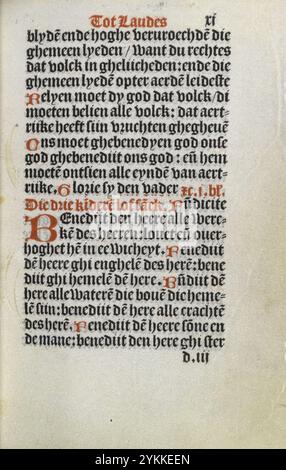 Tot Laudes xj
blydē ende hoghe veruroechdē die
ghemeen lyeden / Want du rechtes
dat volck in gheliicheden: ende die
ghemeen lyedē opter aerdē leideste
Belyen moet dy god dat volck / di
moeten belien alle volck: dat aert-
riike heeft siin vruchten ghegheuē
Ons moet ghebenedyen god onse
god ghebenediit ons god: eñ hem
moetē ontsien alle eyndē van aert-
rike. Glorie sy den vader xc.i.bl.
Die drie kiderē loffāck.
BEnediit den heere alle werc-
kē des heeren: louet eñ ouer-
hoghet hē in ewicheyt. Benediit
dē heere ghi enghelē des herē: bene
diit ghi hemelē dē here. Bñdiit dē
here alle waterē die bouē die heme-
lē siin: benediit dē here alle crachtē
des herē. Benediit dē heere sōne en
de mane: benediit den here ghi ster
d.iij
alamy
www.alamy.com - 2YKKEEN